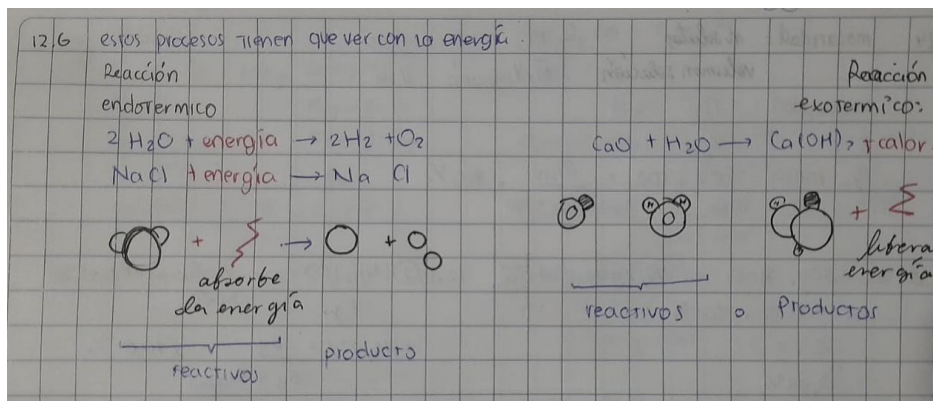 12.6 estos procesos tienen que ver con la energía.
Reacción
endotermico
2 H2O + energía → 2H2 + O2
NaCl + energía → Na Cl
+ → +
absorbe
la energía
reactivos
producto
Reacción
exotermico:
CaO + H2O → Ca(OH)2 + calor
O H O H
+
libera
energía
reactivos o Productos